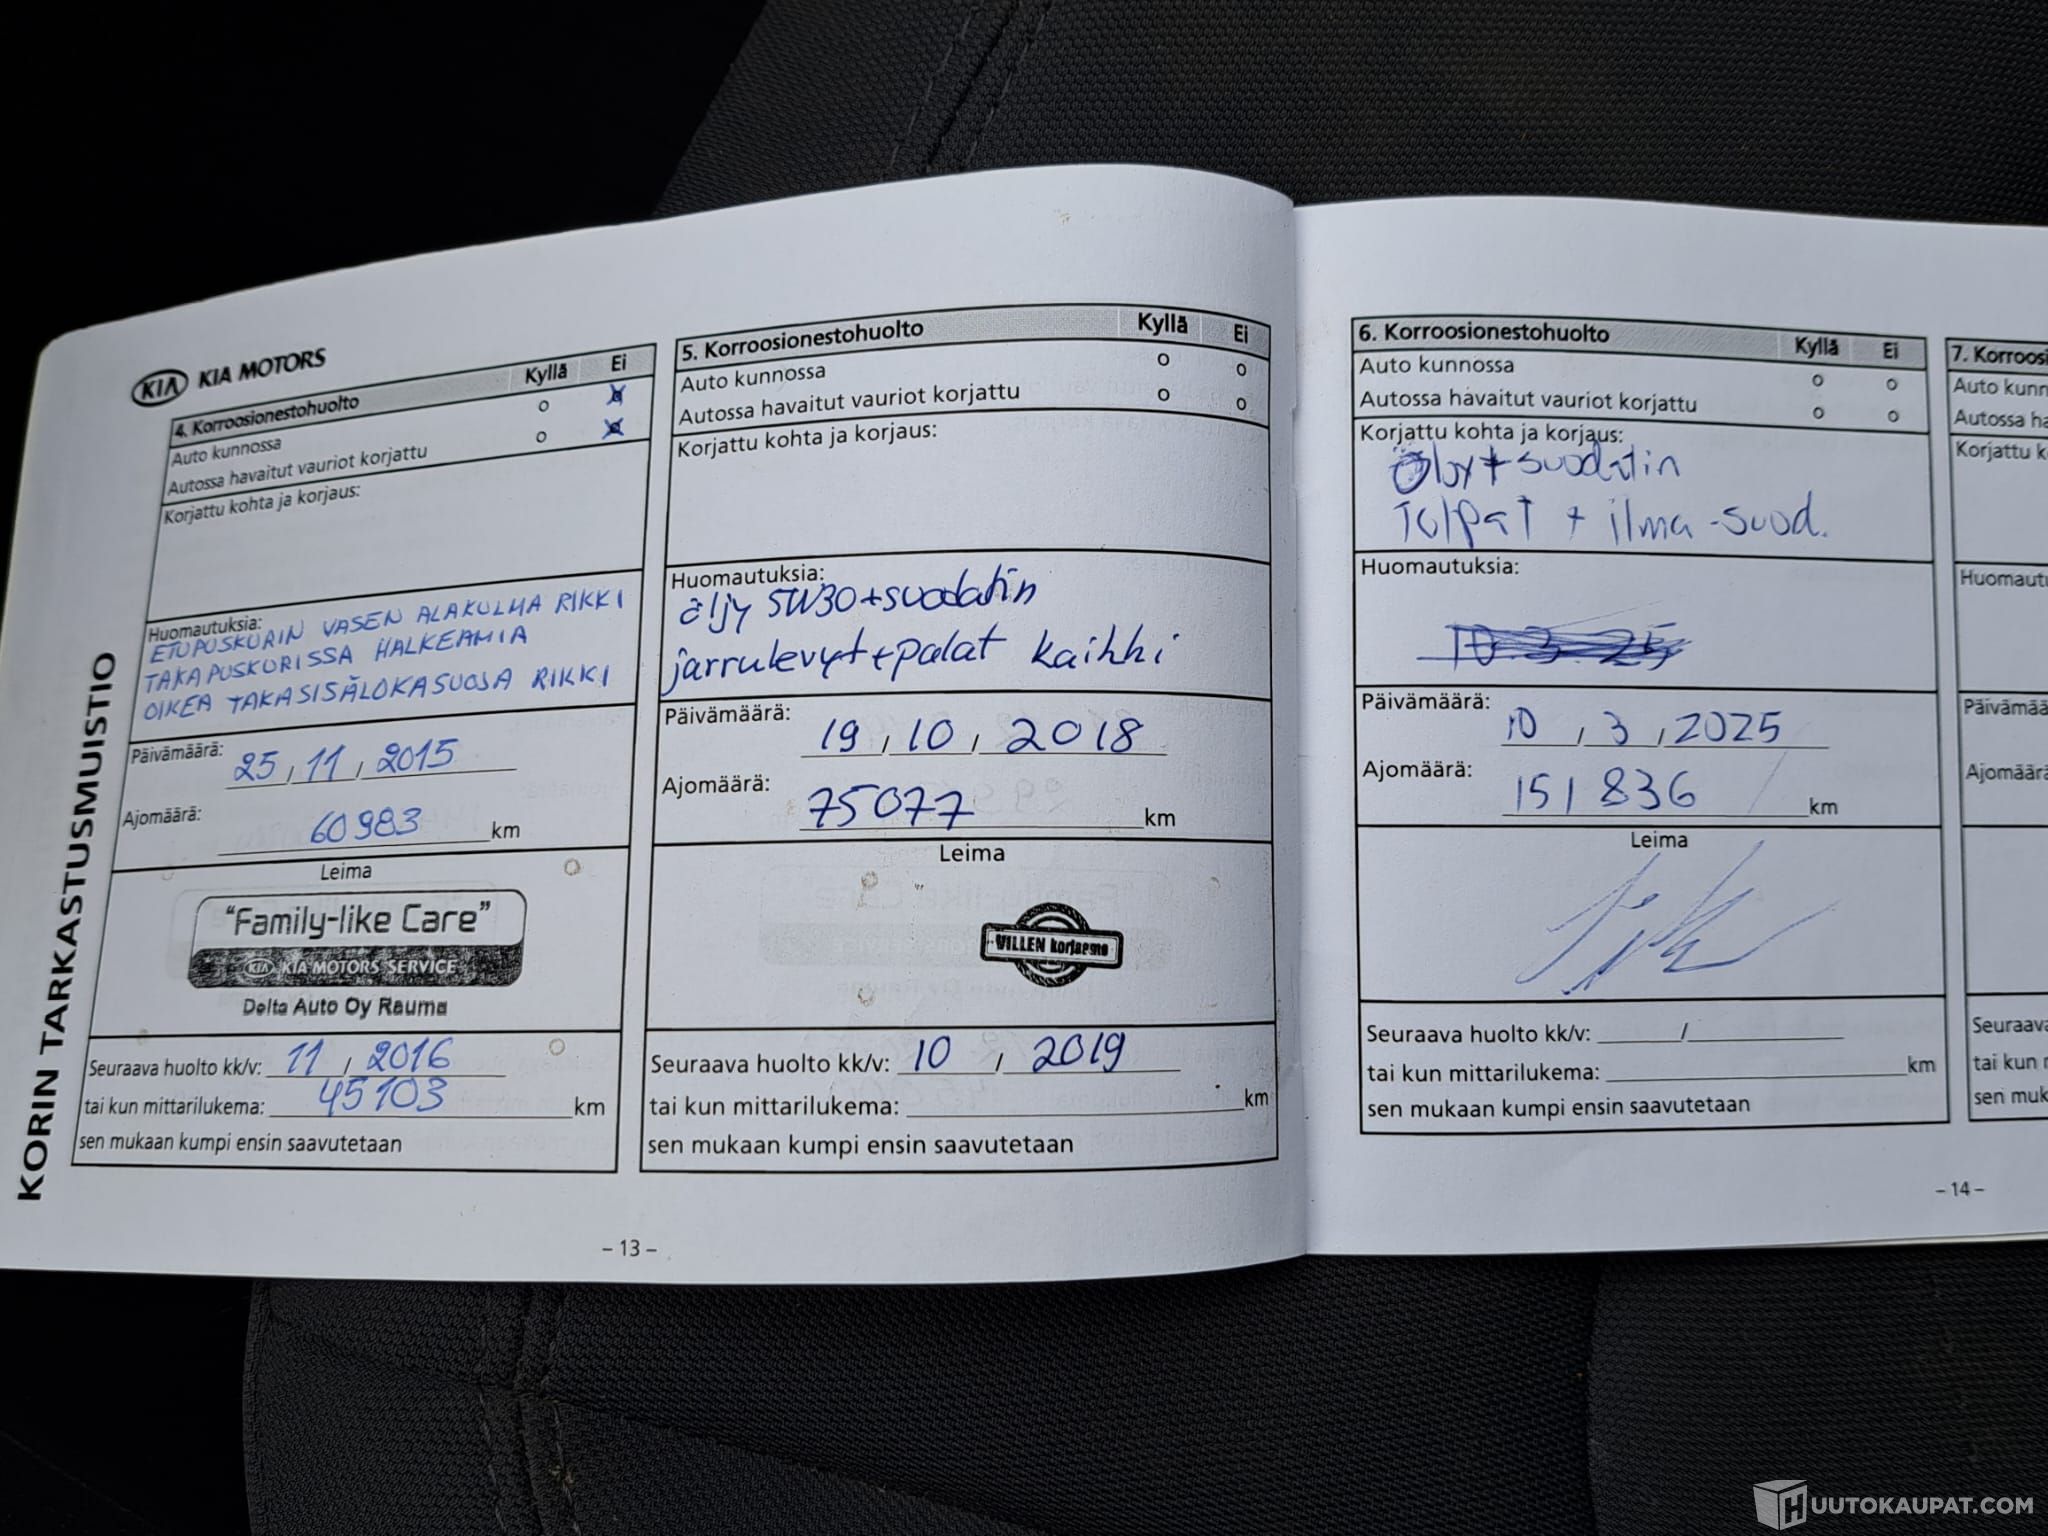 KORIN TARKASTUSMUISTIO
KIA KIA MOTORS
4. Korroosionestohuolto Kyllä Ei
Auto kunnossa
Autossa havaitut vauriot korjattu
Korjattu kohta ja korjaus:
Huomautuksia:
ETUPUSKURIN VASEN ALAKULMA RIKKI
TAKAPUSKURISSA HALKEAMIA
OIKEA TAKASISÄLOKASUOJA RIKKI
Päivämäärä: 25, 11, 2015
Ajomäärä: 60983 km
Leima
"Family-like Care"
KIA KIA MOTORS SERVICE
Delta Auto Oy Rauma
Seuraava huolto kk/v: 11 / 2016
tai kun mittarilukema: 45103 km
sen mukaan kumpi ensin saavutetaan
5. Korroosionestohuolto Kyllä Ei
Auto kunnossa
Autossa havaitut vauriot korjattu
Korjattu kohta ja korjaus:
Huomautuksia:
öljy 5W30+suodatin
jarrulevyt+palat kaikki
Päivämäärä: 19, 10, 2018
Ajomäärä: 75077 km
Leima
VILLEN korjaamo
Seuraava huolto kk/v: 10 / 2019
tai kun mittarilukema: km
sen mukaan kumpi ensin saavutetaan
- 13 -
6. Korroosionestohuolto Kyllä Ei
Auto kunnossa
Autossa havaitut vauriot korjattu
Korjattu kohta ja korjaus:
Öljy + suodatin
Tulpat + ilma-suod.
Huomautuksia:
10.3.25
Päivämäärä: 10, 3, 2025
Ajomäärä: 151836 km
Leima
Seuraava huolto kk/v: /
tai kun mittarilukema: km
sen mukaan kumpi ensin saavutetaan
7. Korroosi
Auto kunn
Autossa ha
Korjattu k
Huomautu
Päivämää
Ajomäärä
Seuraav
tai kun
sen muk
- 14 -
HUUTOKAUPAT.COM